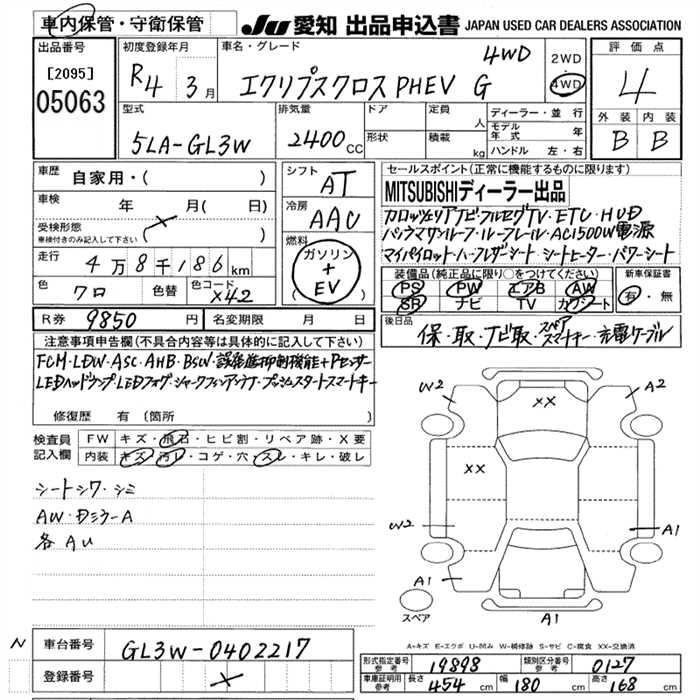 車内保管・守衛保管
JU 愛知 出品申込書 JAPAN USED CAR DEALERS ASSOCIATION
出品番号
[2095]
05063
初度登録年月
R4 3月
車名・グレード
エクリプスクロスPHEV G 4WD
2WD
4WD
評価点
4
外装 内装
B B
型式
5LA-GL3W
排気量
2400cc
ドア
形状
定員 人
積載 kg
ディーラー・並行
モデル年式 年
ハンドル 左・右
車歴 自家用・( )
車検 年 月( 日)
受検形態
車検付きのみ記入して下さい ( × )
走行 4万8千186km
色 クロ 色替 色コード X42
シフト
AT
冷房
AAC
燃料
ガソリン
+
EV
セールスポイント(正常に機能するものに限ります)
MITSUBISHIディーラー出品
カロッツェリアナビ・フルセグTV・ETC・HUD
パノラマサンルーフ・ルーフレール・AC1500W電源
マイパイロット・ハーフレザーシート・シートヒーター・パワーシート
装備品(純正品に限り○をつけてください)
PS PW エアB AW
SR ナビ TV カワシート
新車保証書
有・無
R券 9850円 名変期限 月 日
後日品
保・取・ナビ取・スペアスマートキー・充電ケーブル
注意事項申告欄(不具合内容等は具体的に記入して下さい)
FCM・LDW・ASC・AHB・BSW・誤発進抑制機能+Pセンサー
LEDヘッドランプ・LEDフォグ・シャークフィンアンテナ・プッシュスタートスマートキー
修復歴 有 〔箇所 〕
検査員記入欄
FW キズ・飛石・ヒビ割・リペア跡・X要
内装 キズ・汚レ・コゲ・穴・スレ・キレ・破レ
シートシワ・シミ
AW・DミラーA
各AU
W2
××
A2
××
W2
A1
A1
A1
スペア
A=キズ E=エクボ U=凹み W=補修跡 S=サビ C=腐食 XX=交換済
N
車台番号 GL3W-0402217
登録番号 ×
形式指定番号 参考 19898 類別区分番号 参考 0127
車庫証明用 参考 長さ 454cm 幅 180cm 高さ 168cm